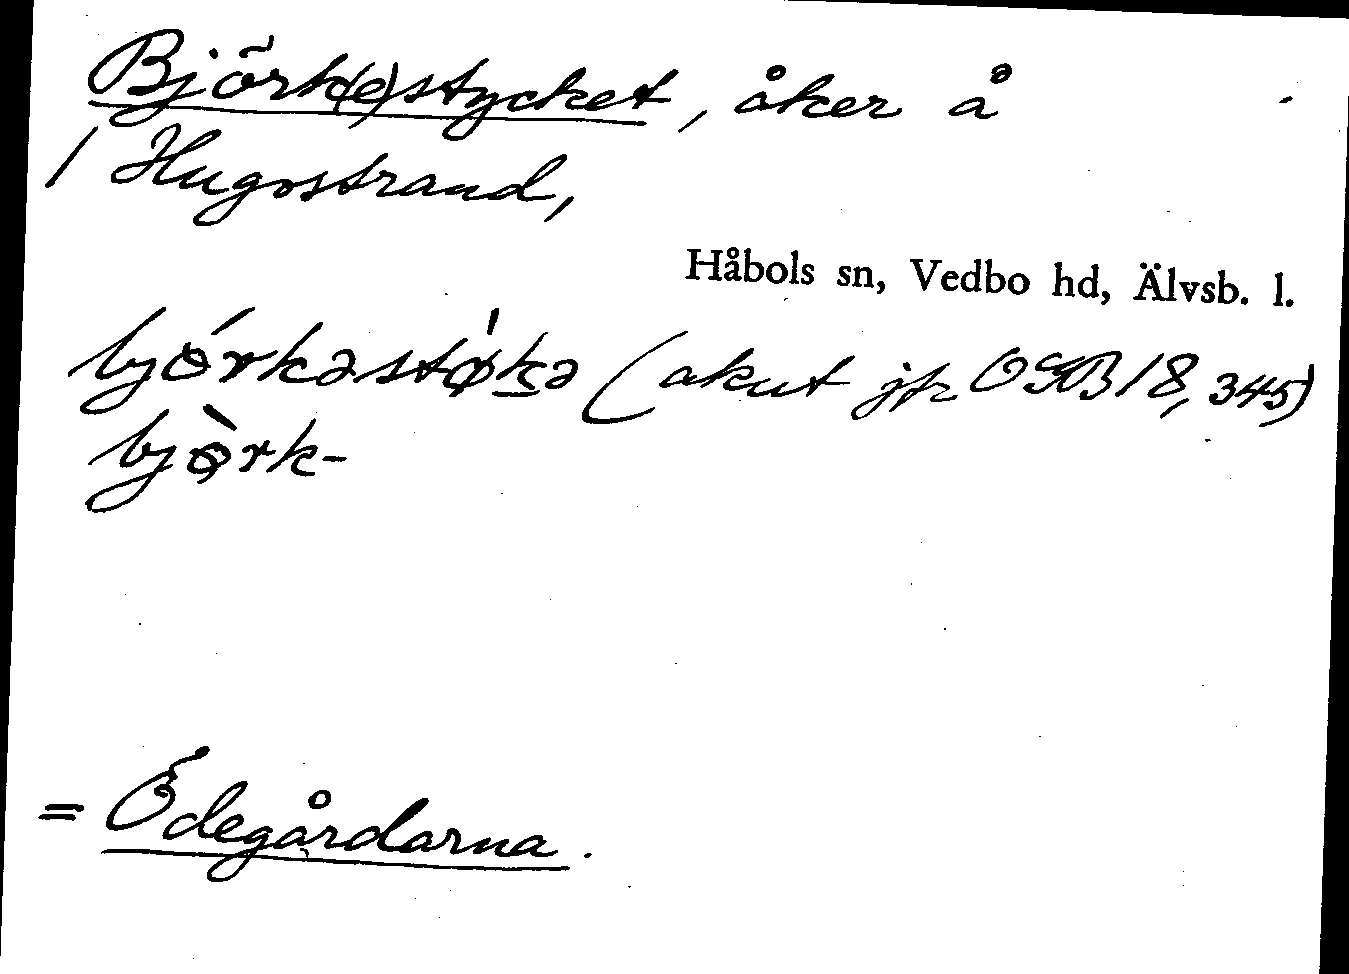 Björk(e)stycket, åker å
/ Hugostrand,
Håbols sn, Vedbo hd, Älvsb. l.
bjǿrkəstø̍kə (akut jfr OGB 18, 345)
bjø̀rk-
= Ödegårdarna.